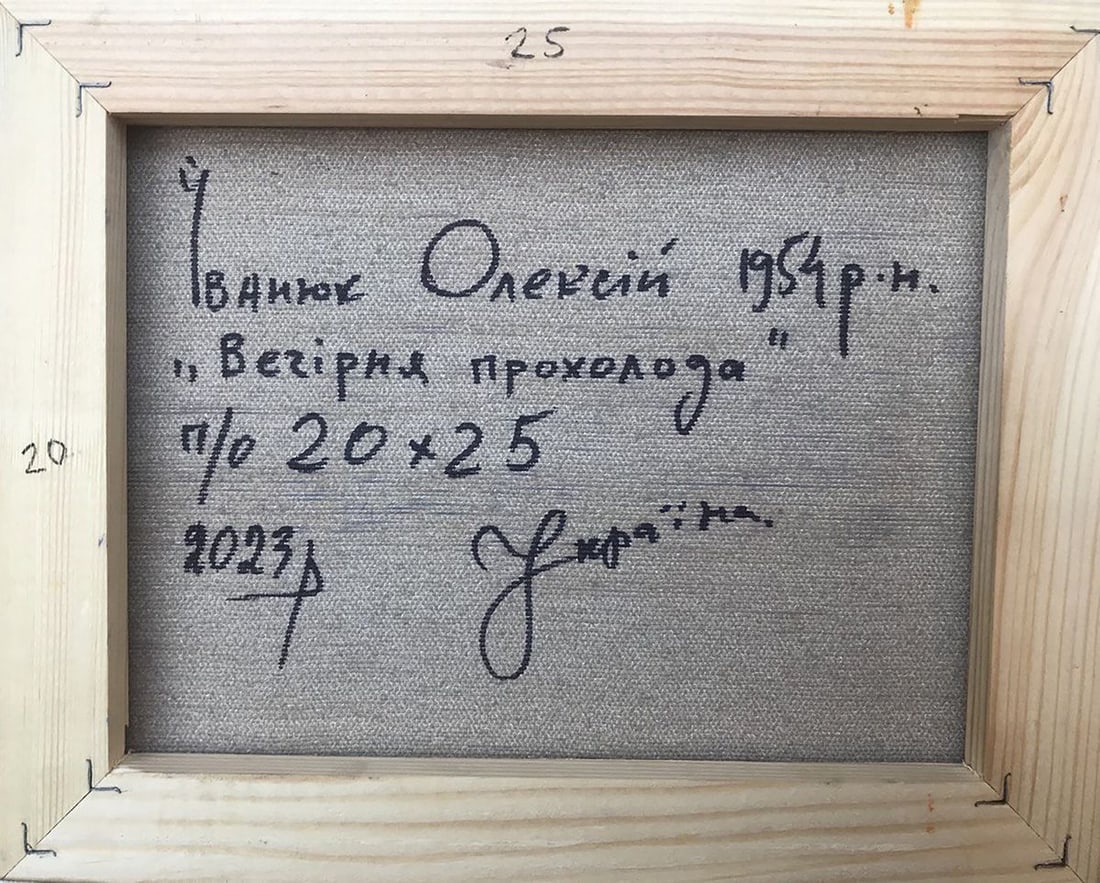 25
Іванюк Олексій 1954 р.н.
„Вечірня прохолода"
п/о 20×25
20
2023р Україна.